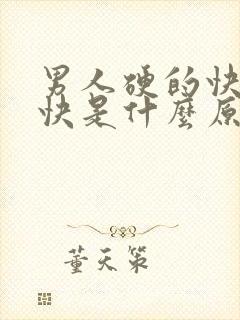 男人硬的快
快是什麼原
董天策